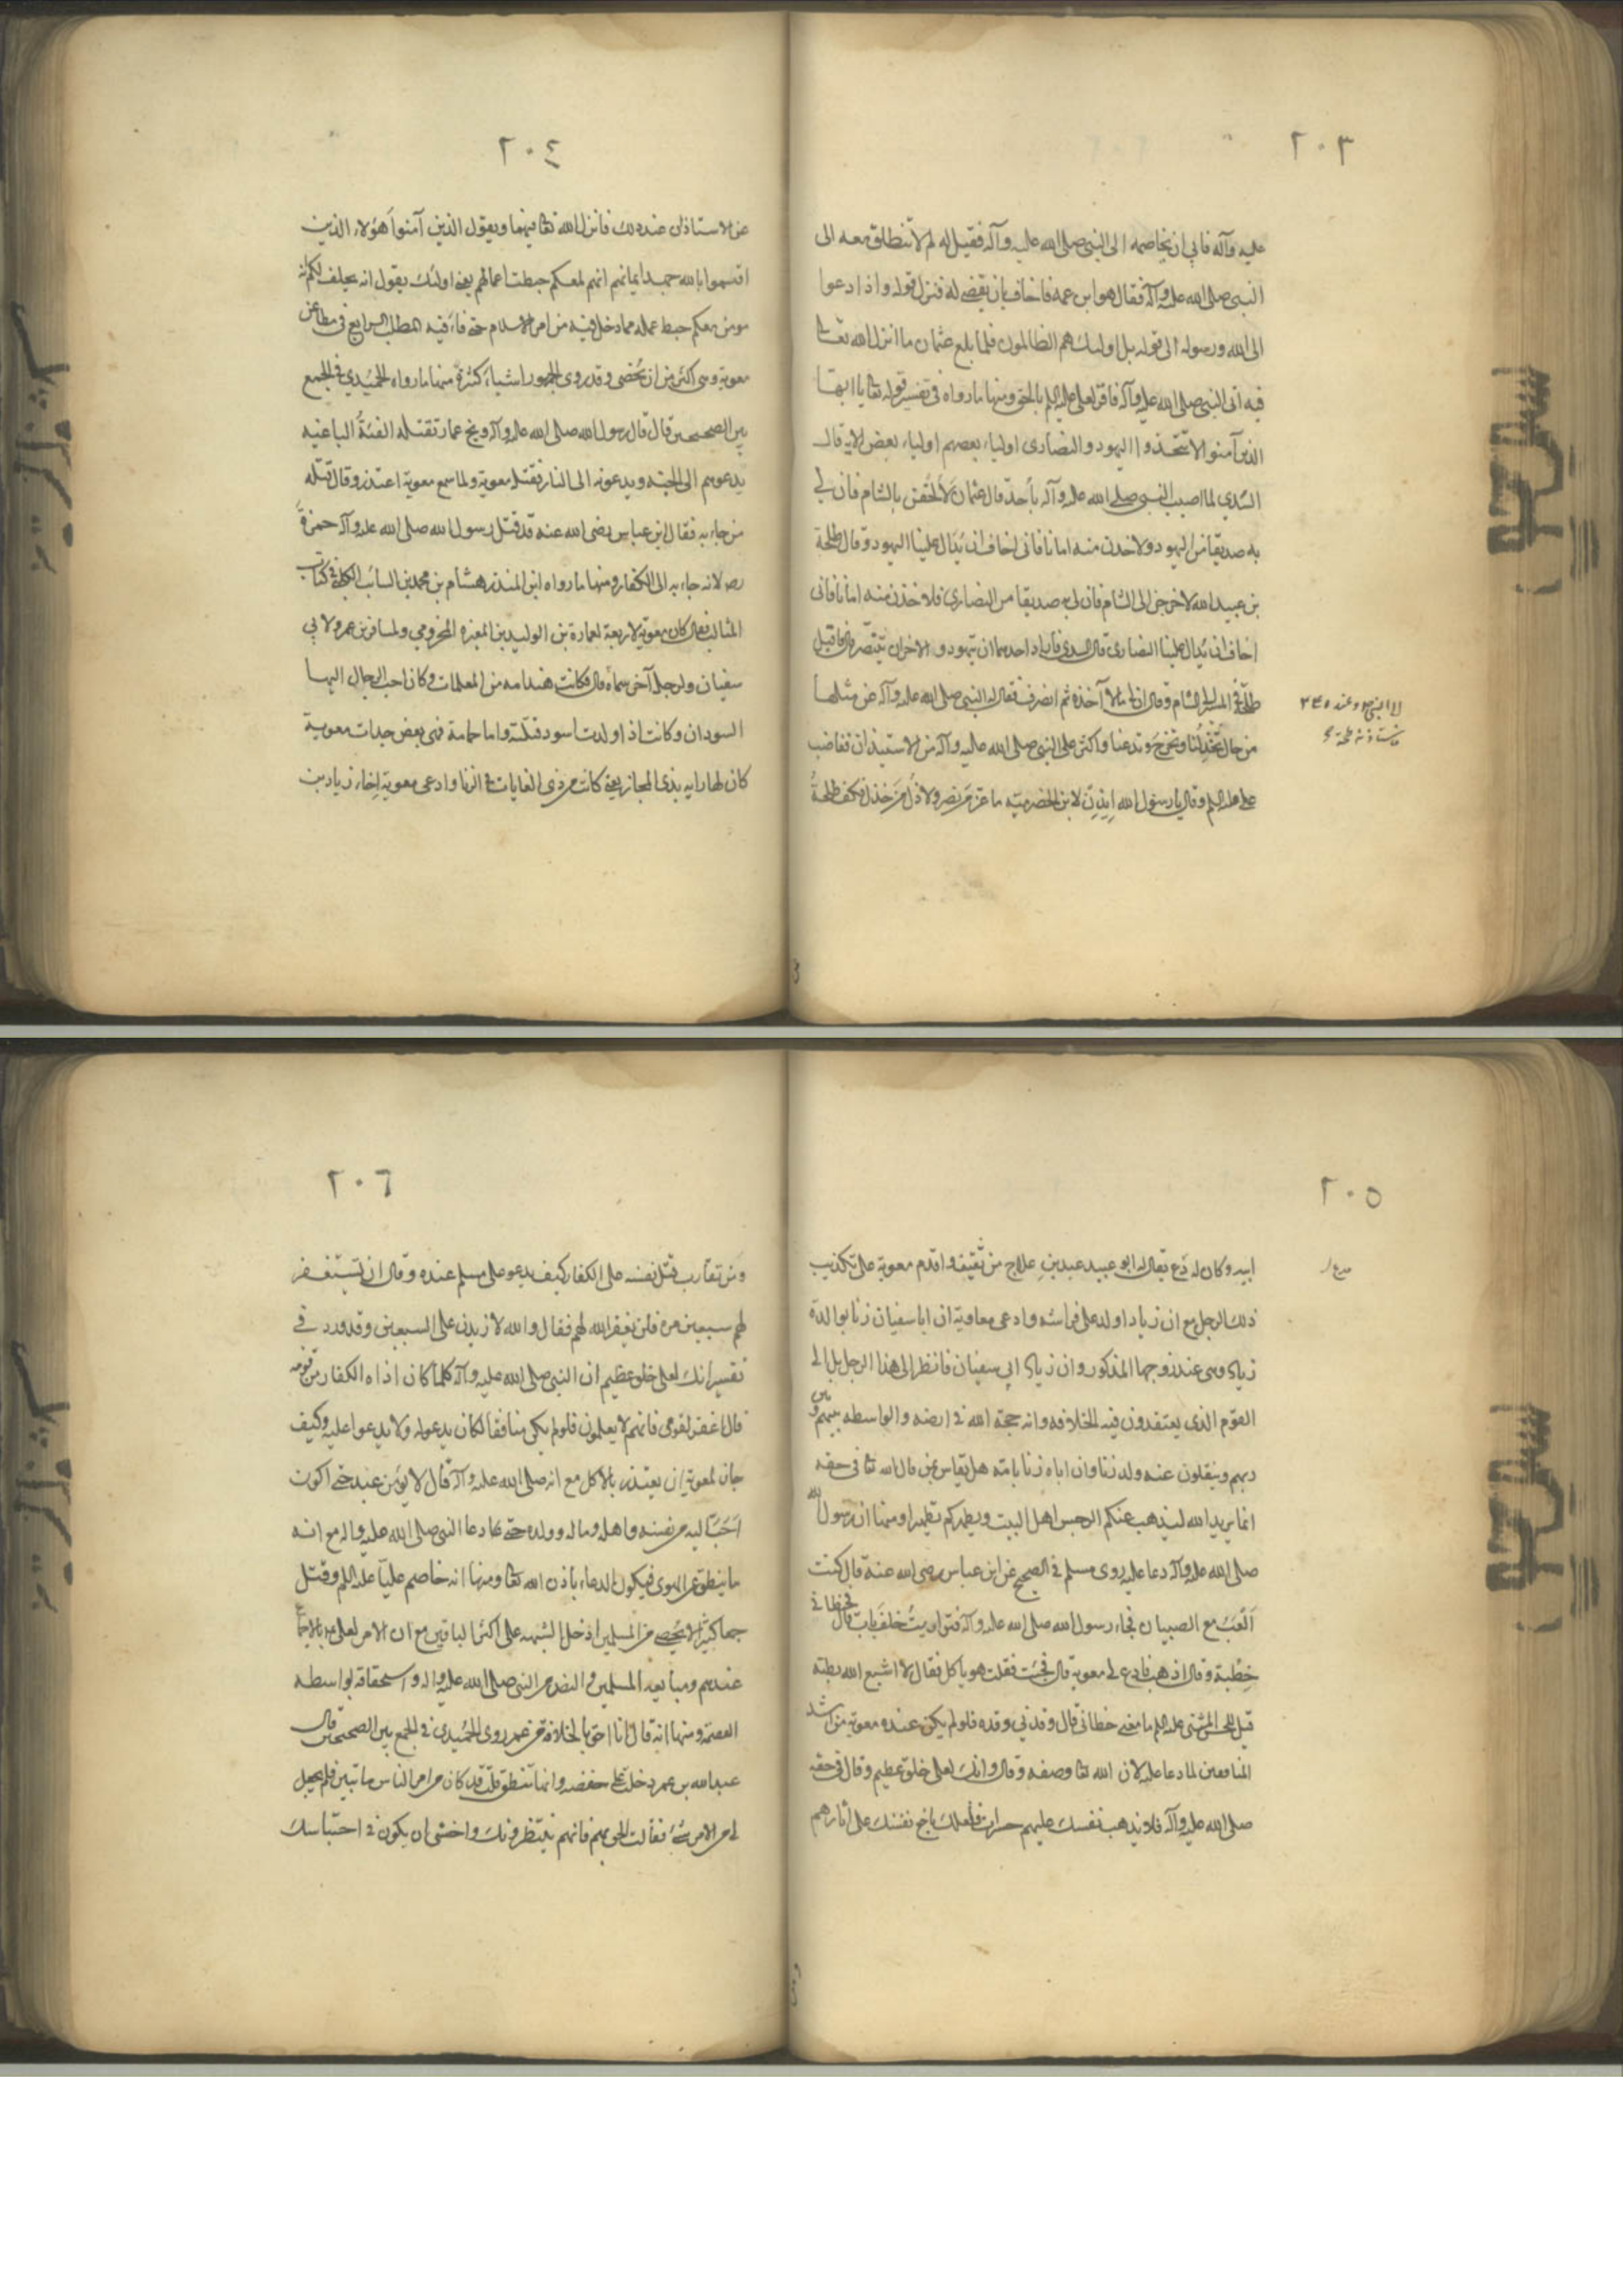 ٢٠٣
عليه وآله فابي ان يخاصمه الى النبي صلى الله عليه وآله فقيل له لم لا تنطلق معه الى
النبي صلى الله عليه وآله فقال هو ابن عمه فاخاف بان يقضي له فنزل قوله واذا دعوا
الى الله ورسوله الى قوله بل اولئك هم الظالمون فلما بلغ عثمان ما انزل الله تعالى
فيه اتى النبي صلى الله عليه وآله فاقر لعلي عليه السلم بالحق ومنها ما رواه في تفسير قوله تعا يا ايها
الذين آمنوا لا تتخذوا اليهود والنصارى اولياء بعضهم اولياء بعض الاية قال
السدي لما اصيب النبي صلى الله عليه وآله بأحد قال عثمان لألحقن بالشام فان لي
به صديقا من اليهود ولاخذن منه امانا فاني اخاف ان يدال علينا اليهود وقال طلحة
بن عبيد الله لاخرجن الى الشام فان لي به صديقا من النصارى فلاخذن منه امانا فاني
اخاف ان يدال علينا النصارى قال السدي فاراد احدهما ان يتهود والاخر ان يتنصر قال فاقبل
طلحة في المسير الى الشام وقال ان لي بها مالا آخذه ثم انصرف فقال له النبي صلى الله عليه وآله عن مثلها
من حال تخذلنا وتخرج وتدعنا واكثر على النبي صلى الله عليه وآله من الاستيذان فغضب
علي عليه السلم وقال يا رسول الله ايذن لابن الحضرمية ما عز من نصر ولا ذل من خذل فكف طلحة
٢٠٤
عن الاستاذان عند ذلك فانزل الله تعا فيهما ويقول الذين آمنوا أهؤلاء الذين
اقسموا بالله جهد ايمانهم انهم لمعكم حبطت اعمالهم يعني اولئك يقول انه يحلف لكم انه
مومن معكم حبط عمله مما دخل فيه من امر الاسلام حتى فافيه المطلب الرابع في مطاعن
معوية وهي اكثر من ان تحصى وقد روى الجمهور اشياء كثرة منها ما رواه الحميدي في الجمع
بين الصحيحين قال قال رسول الله صلى الله عليه وآله ويح عمار تقتله الفئة الباغيه
يدعوهم الى الجنة ويدعونه الى النار فقتله معوية ولما سمع معوية اعتذر وقال قتله
من جاء به فقال ابن عباس رضى الله عنه قد قتل رسول الله صلى الله عليه وآله حمزة
رضه لانه جاء به الى الكفار ومنها ما رواه ابو المنذر هشام بن محمد بن السائب الكلبي في كتاب
المثالب فقال كان معوية لاربعة لعمارة بن الوليد بن المغيره المخزومي ولمسافر بن عمرو ولابي
سفيان ولرجل آخر سماه قال وكانت هند امه من المعلمات وكان احب الرجال اليها
السودان وكانت اذا ولدت اسود قتلته واما حمامة فهي بعض جدات معوية
كان لها رايه بذي المجاز يعني كانت من ذوى الغايات في الزنا وادعى معوية اخاه زياد بن
٢٠٥
ابيه وكان له مدع يقال له ابو عبيد عبد بن علاج من ثقيف واقدم معوية على تكذيب
ذلك الرجل مع ان زيادا ولد على فراشه وادعى معاوية ان ابا سفيان زنا بوالدة
زياد وهى عند زوجها المذكور وان زياد ابي سفيان فانظر الى هذا الرجل بل الى
القوم الذي يعتقدون فيه الخلافه وانه حجة الله في ارضه والواسطه بينهم وبين
ربهم وينقلون عنه ولد زنا وان اباه زنا بامه هل يقاس بمن قال الله تعا في حقه
انما يريد الله ليذهب عنكم الرجس اهل البيت ويطهركم تطهيرا ومنها ان رسول الله
صلى الله عليه وآله دعا عليه روى مسلم في الصحيح عن ابن عباس رضى الله عنه قال كنت
العب مع الصبيان فجاء رسول الله صلى الله عليه وآله فتواريت خلف باب قال فحطاني
حطبة وقال اذهب فادع لي معوية قال فجئت فقلت هو ياكل فقال لا اشبع الله بطنه
قيل لابن المثنى ما معنى حطاني قال وقدني وقده فلو لم يكن عنده معوية من اشد
المنافقين لما دعا عليه لان الله تعا وصفه وقال وانك لعلى خلق عظيم وقال في حقه
صلى الله عليه وآله فلا تذهب نفسك عليهم حسرات فلعلك باخع نفسك على آثارهم
٢٠٦
ومن تقارب قتل نفسه على الكفار كيف يدعو على مسلم عنده وقال ان تستغفر
لهم سبعين مرة فلن يغفر الله لهم فقال والله لازيدن على السبعين وقد ورد في
تفسير انك لعلى خلق عظيم ان النبي صلى الله عليه وآله كلما كان اذاه الكفار من قومه
قال اغفر لقومي فانهم لا يعلمون فلو لم يكن منافقا لكان يدعو له ولا يدعوا عليه وكيف
جاز لمعوية ان يعتذر بالاكل مع انه صلى الله عليه وآله قال لا يؤمن عبد حتى اكون
احب اليه من نفسه واهله وماله وولده حتى دعا النبي صلى الله عليه واله مع انه
ما ينطق عن الهوى فيكون الدعاء باذن الله تعا ومنها انه خاصم عليا عليه السلم وقتل
جمعا كثيرا لا يحصى من المسلمين ادخل الشبهه على اكثر الباقين مع ان الامر لعلي بالاجماع
عندهم ومبايعه المسلمين والنص من النبي صلى الله عليه واله واستحقاقه بواسطه
العصمة ومنها انه قال انا احق بالخلافة من عمر روى الحميدي في الجمع بين الصحيحين قال
عبد الله بن عمر دخلت على حفصه وانما تنطق قلت قد كان من امر الناس ما تبين فلم يجعل
لي من الامر شئ فقالت الحق بهم فانهم ينتظرونك واخشى ان يكون في احتباسك